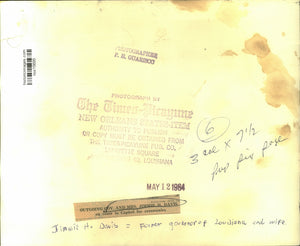 PHOTOGRAPHER
P. S. GUARISCO
PHOTOGRAPH BY
The Times-Picayune
NEW ORLEANS STATES-ITEM
AUTHORITY TO PUBLISH
OR COPY MUST BE OBTAINED FROM
THE TIMES-PICAYUNE PUB. CO.
LAFAYETTE SQUARE
NEW ORLEANS, LOUISIANA
6
3 col x 7 1/2
MAY 12 1964
OUTGOING GOV. AND MRS. JIMMIE H. DAVIS
Jimmie H. Davis = Former governor of Louisiana and wife